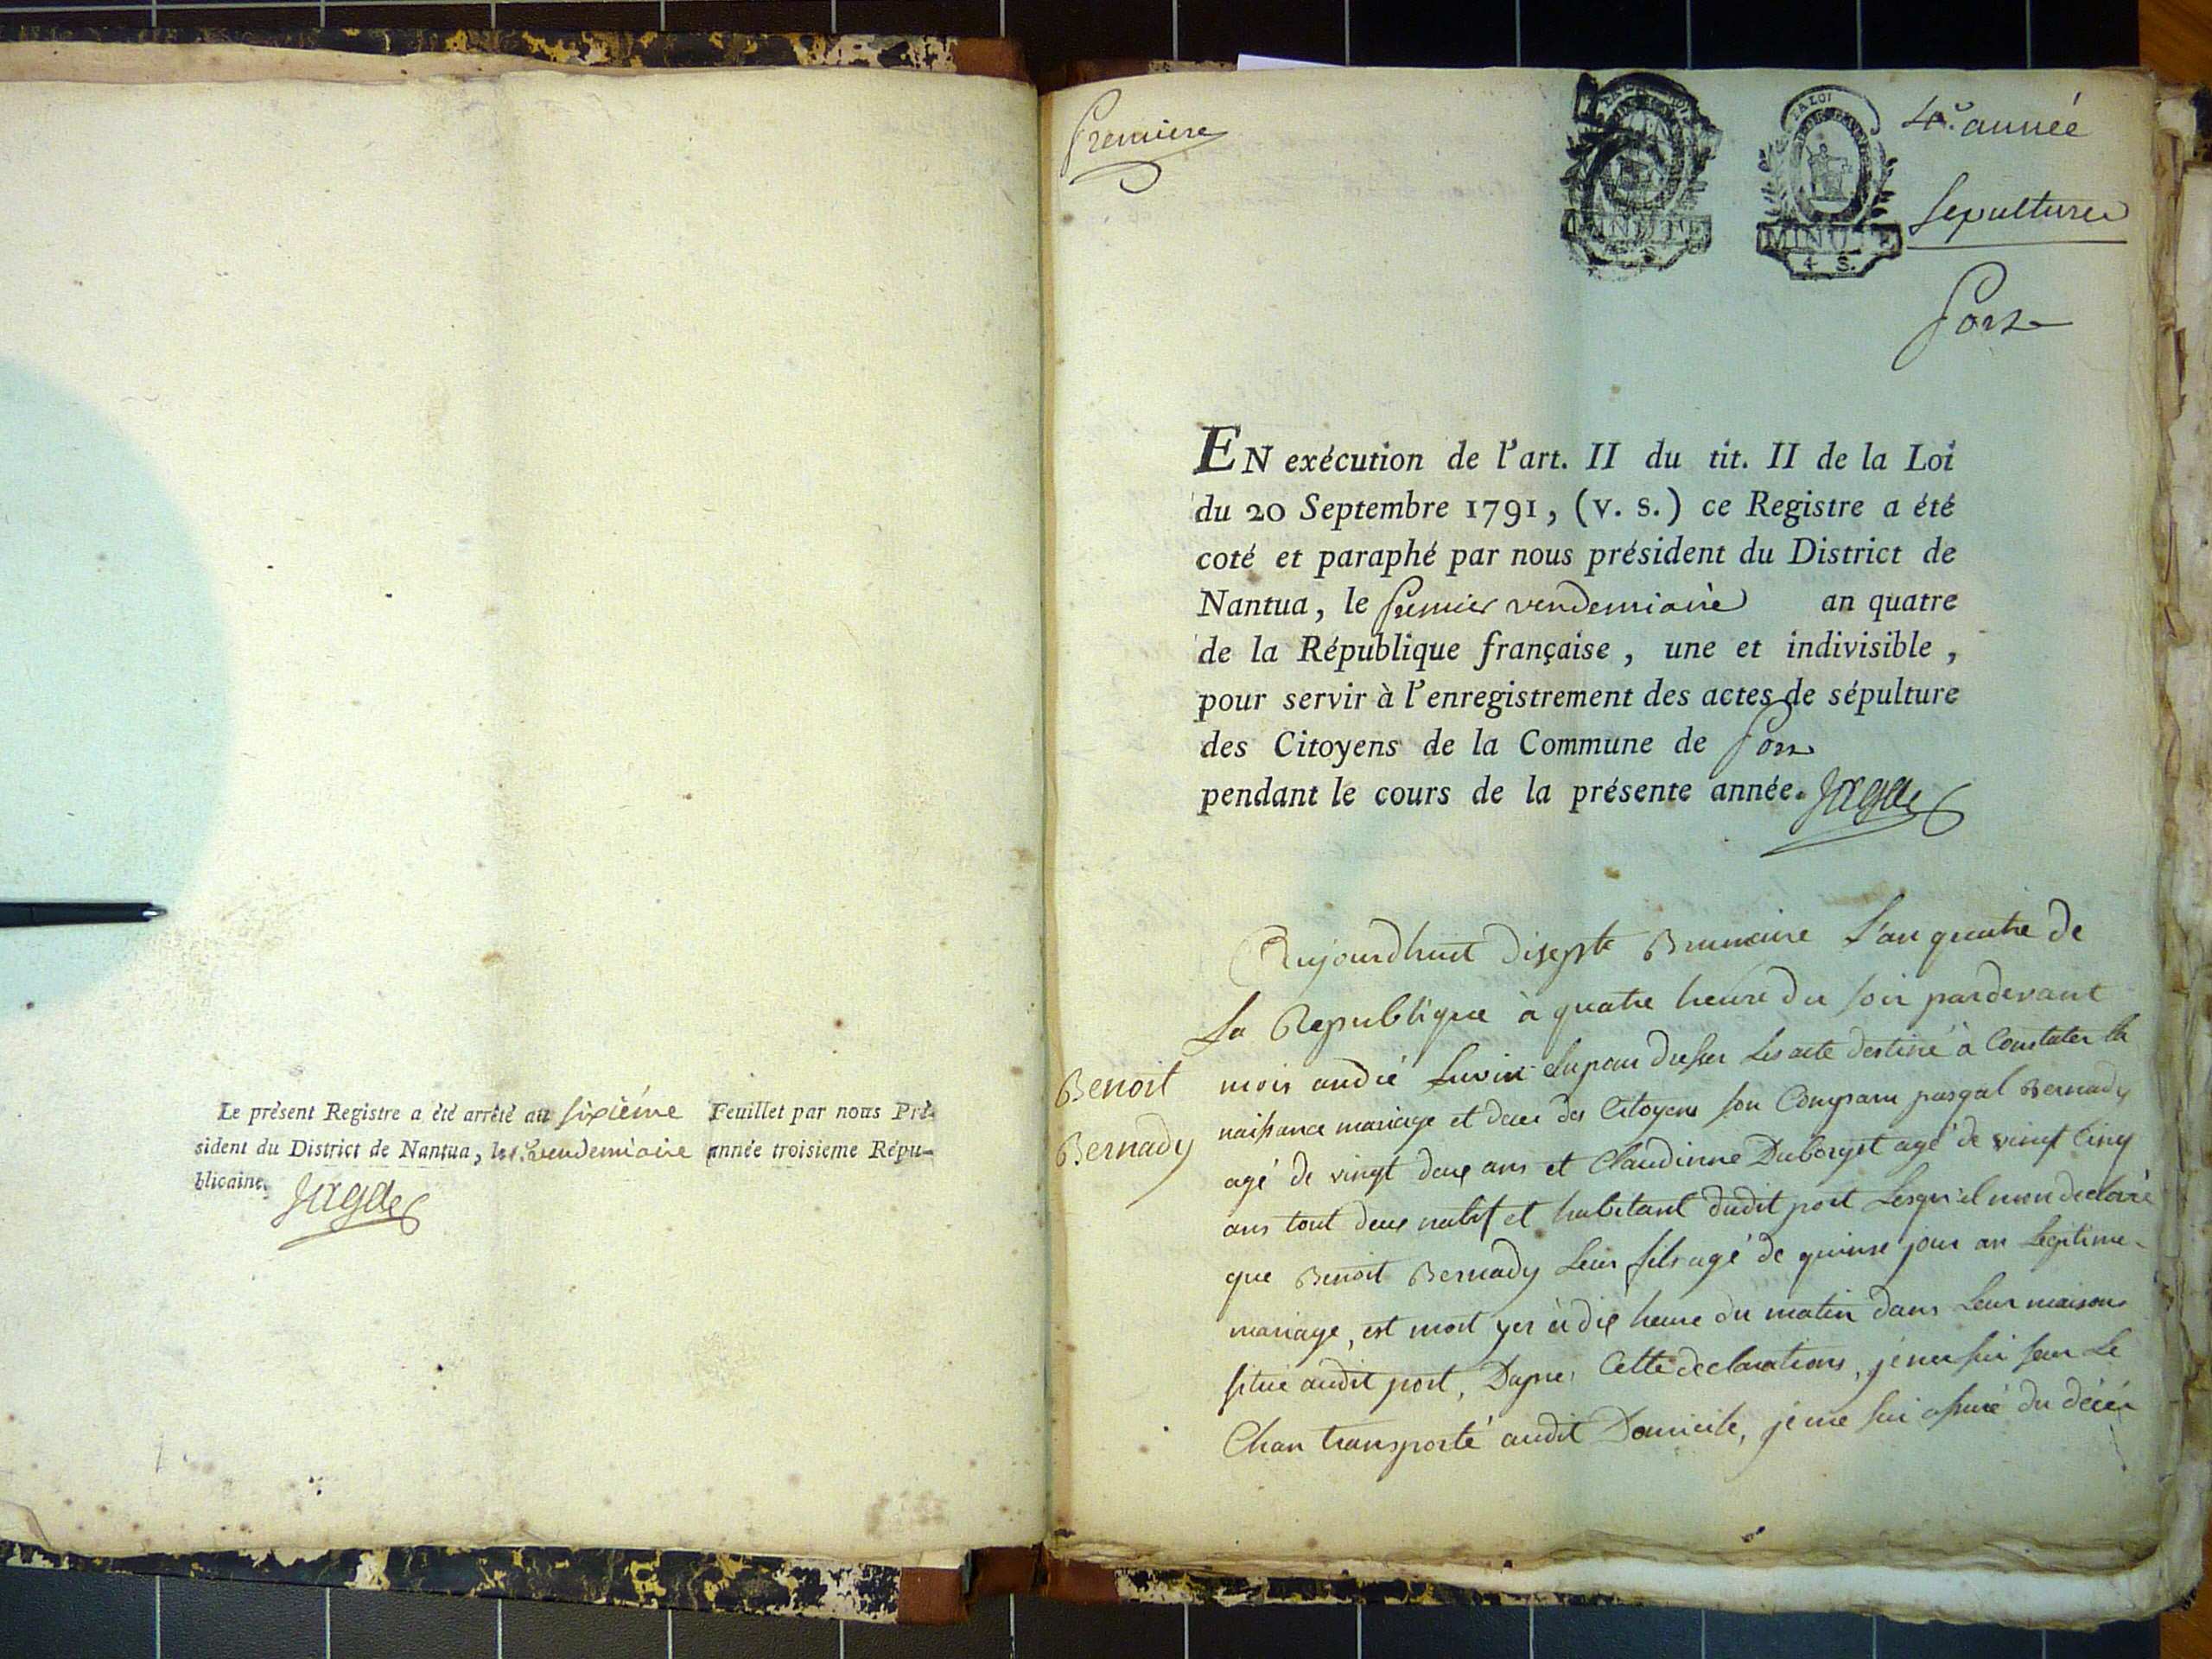 Le présent Registre a été arrêté au sixiéme Feuillet par nous Pré-
sident du District de Nantua, le 1.er vendemiaire année troisieme Répu-
blicaine.
Premiere
LA LOI
MINUTE
LA LOI
MINUTE
4 S.
4.e année
Sepultures
Port
EN exécution de l'art. II du tit. II de la Loi
du 20 Septembre 1791, (v. s.) ce Registre a été
coté et paraphé par nous président du District de
Nantua, le premier vendemiaire an quatre
de la République française, une et indivisible,
pour servir à l'enregistrement des actes de sépulture
des Citoyens de la Commune de Port
pendant le cours de la présente année.
Benoit
Bernady
Aujourdhuit disepte Brumaire L'an quatre de
La Republique à quatre heure du soir pardevant
mois andié Elu pour dresser Les acte destiné à Constater la
naissance mariage et deces des Citoyens son Comparu pasqal Bernady
agé de vingt deux ans et Claudinne Duborget agé de vingt Cinq
ans tout deux natif et habitant dudit port Lesqu'el mon declaré
que Benoit Bernady Leur fils agé de quinse jour an Legitime
mariage, est mort yer à dix heure du matin dans Leur maison
situé audit port, Dapre Cette declarations, je me sui sur Le
Chan transporté audit Domicile, je me sui assuré du décér